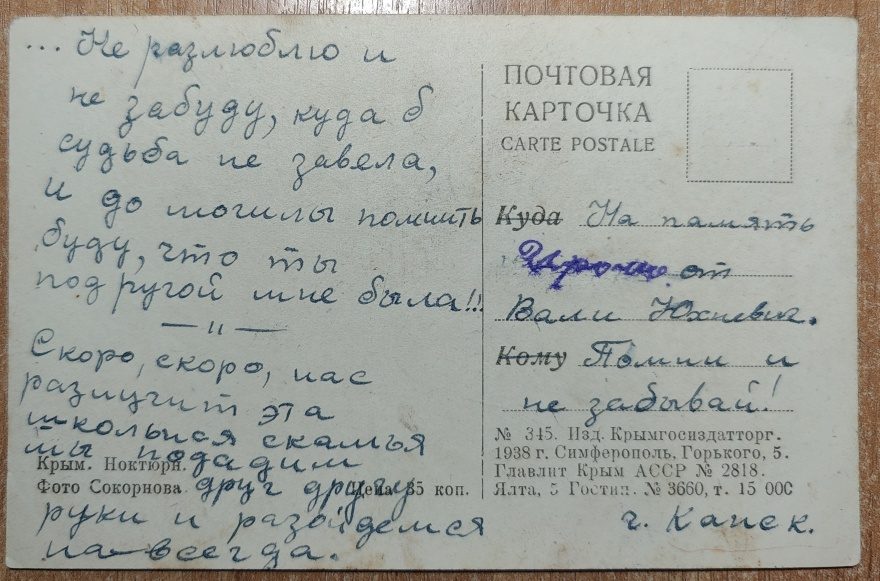 ... Не разлюблю и
не забуду, куда б
судьба не завела,
и до могилы помнить
буду, что ты
подругой мне была!!!
— " —
Скоро, скоро, нас
разлучит эта
школьная скамья
мы подадим
друг другу
руки и разойдемся
на-всегда.
Крым. Ноктюрн.
Фото Сокорнова Цена 35 коп.
ПОЧТОВАЯ
КАРТОЧКА
CARTE POSTALE
Куда На память
от
Вали
Кому Помни и
не забывай!
№ 345. Изд. Крымгосиздатторг.
1938 г. Симферополь, Горького, 5.
Главлит Крым АССР № 2818.
Ялта, 5 Гостип. № 3660, т. 15 000
г. Канск.